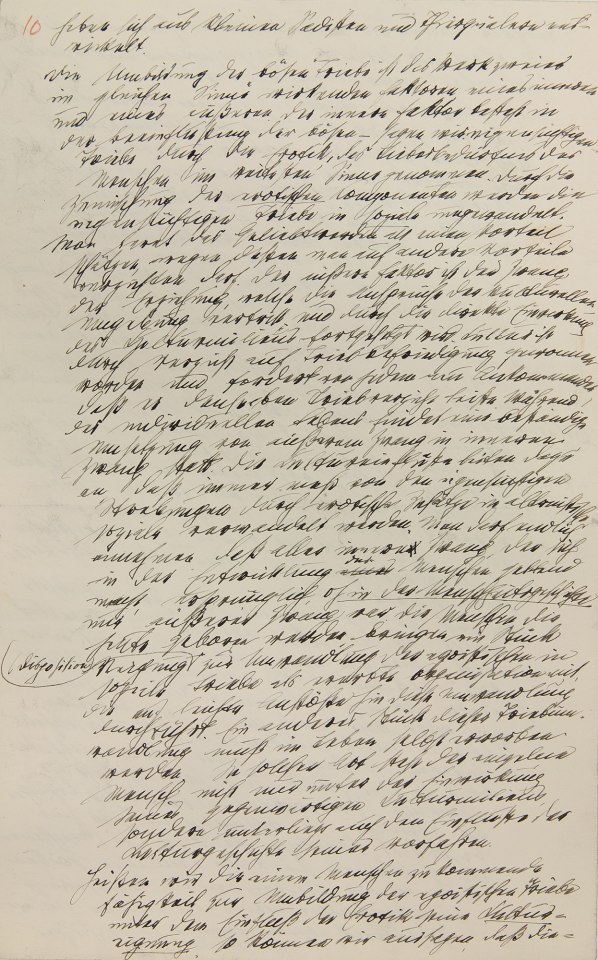 10 haben sich aus kleinen Sadisten und Tierquälern ent-
wickelt.
Die Umbildung der bösen Triebe ist das Werk zweier
im gleichen Sinne wirkenden Faktoren, eines inneren
und eines äußeren. Der innere Faktor besteht in
der Beeinflussung der bösen – sagen wir: eigensüchtigen
Triebe durch die Erotik, das Liebesbedürfnis des
Menschen im weitesten Sinne genommen. Durch die
Zumischung der erotischen Komponenten werden die
eigensüchtigen Triebe in soziale umgewandelt.
Man lernt das Geliebtwerden als einen Vorteil
schätzen, wegen dessen man auf andere Vorteile
verzichten darf. Der äußere Faktor ist der Zwang
der Erziehung, welche die Ansprüche der kulturellen
Umgebung vertritt und durch die direkte Einwirkung
des Kulturmilieus fortgesetzt wird. Kultur ist
durch Verzicht auf Triebbefriedigung gewonnen
worden und fordert von jedem neu Ankommenden,
daß er denselben Triebverzicht leiste. Während
des individuellen Lebens findet eine beständige
Umsetzung von äußerem Zwang in inneren
Zwang statt. Die Kultureinflüsse leiten dazu
an, daß immer mehr von den eigensüchtigen
Strebungen durch erotische Zusätze in altruistische,
soziale verwandelt werden. Man darf endlich
annehmen, daß aller innere Zwang, der sich
in der Entwicklung des Menschen geltend
macht, ursprünglich, d. h. in der Menschheitsgeschichte
nur äußerer Zwang war. Die Menschen, die
heute geboren werden, bringen ein Stück
(Disposition) Neigung zur Umwandlung der egoistischen in
soziale Triebe als ererbte Organisation mit,
die auf leichte Anstöße hin diese Umwandlung
durchführt. Ein anderes Stück dieser Triebum-
wandlung muß im Leben selbst erworben
werden. In solcher Art steht der einzelne
Mensch nicht nur unter der Einwirkung
seines gegenwärtigen Kulturmilieus,
sondern unterliegt auch dem Einflusse der
Kulturgeschichte seiner Vorfahren.
Heißen wir die einem Menschen zukommende
Fähigkeit zur Umbildung der egoistischen Triebe
unter dem Einfluß der Erotik seine Kultur-
eignung, so können wir aussagen, daß die-